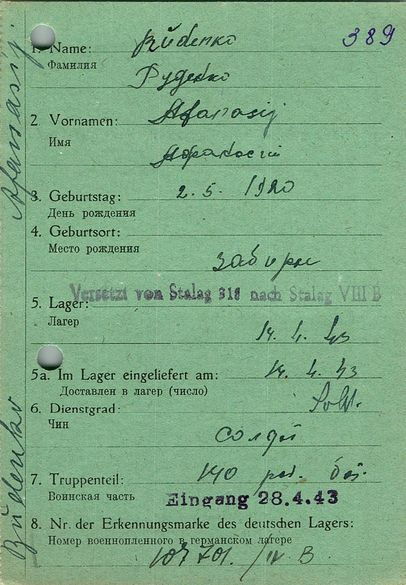 389
1. Name: Rudenko
Фамилия Руденко
2. Vornamen: Afanasij
Имя Афанасий
3. Geburtstag: 2.5. 1920
День рождения
4. Geburtsort:
Место рождения
Versetzt von Stalag 318 nach Stalag VIII B
5. Lager:
Лагер 14. 4. 43
5a. Im Lager eingeliefert am: 14. 4. 43
Доставлен в лагер (число)
6. Dienstgrad: Sold.
Чин солдат
7. Truppenteil: 140
Воинская часть Eingang 28.4.43
8. Nr. der Erkennungsmarke des deutschen Lagers:
Номер военнопленного в германском лагере
107701 / IV B
Rudenko Afanasij